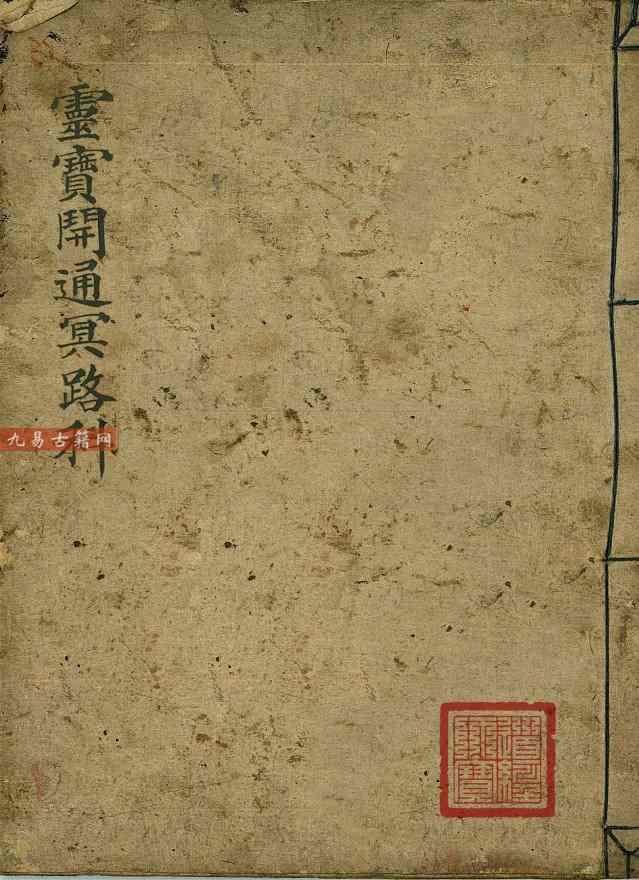 靈寶開通冥路科
九易古籍网